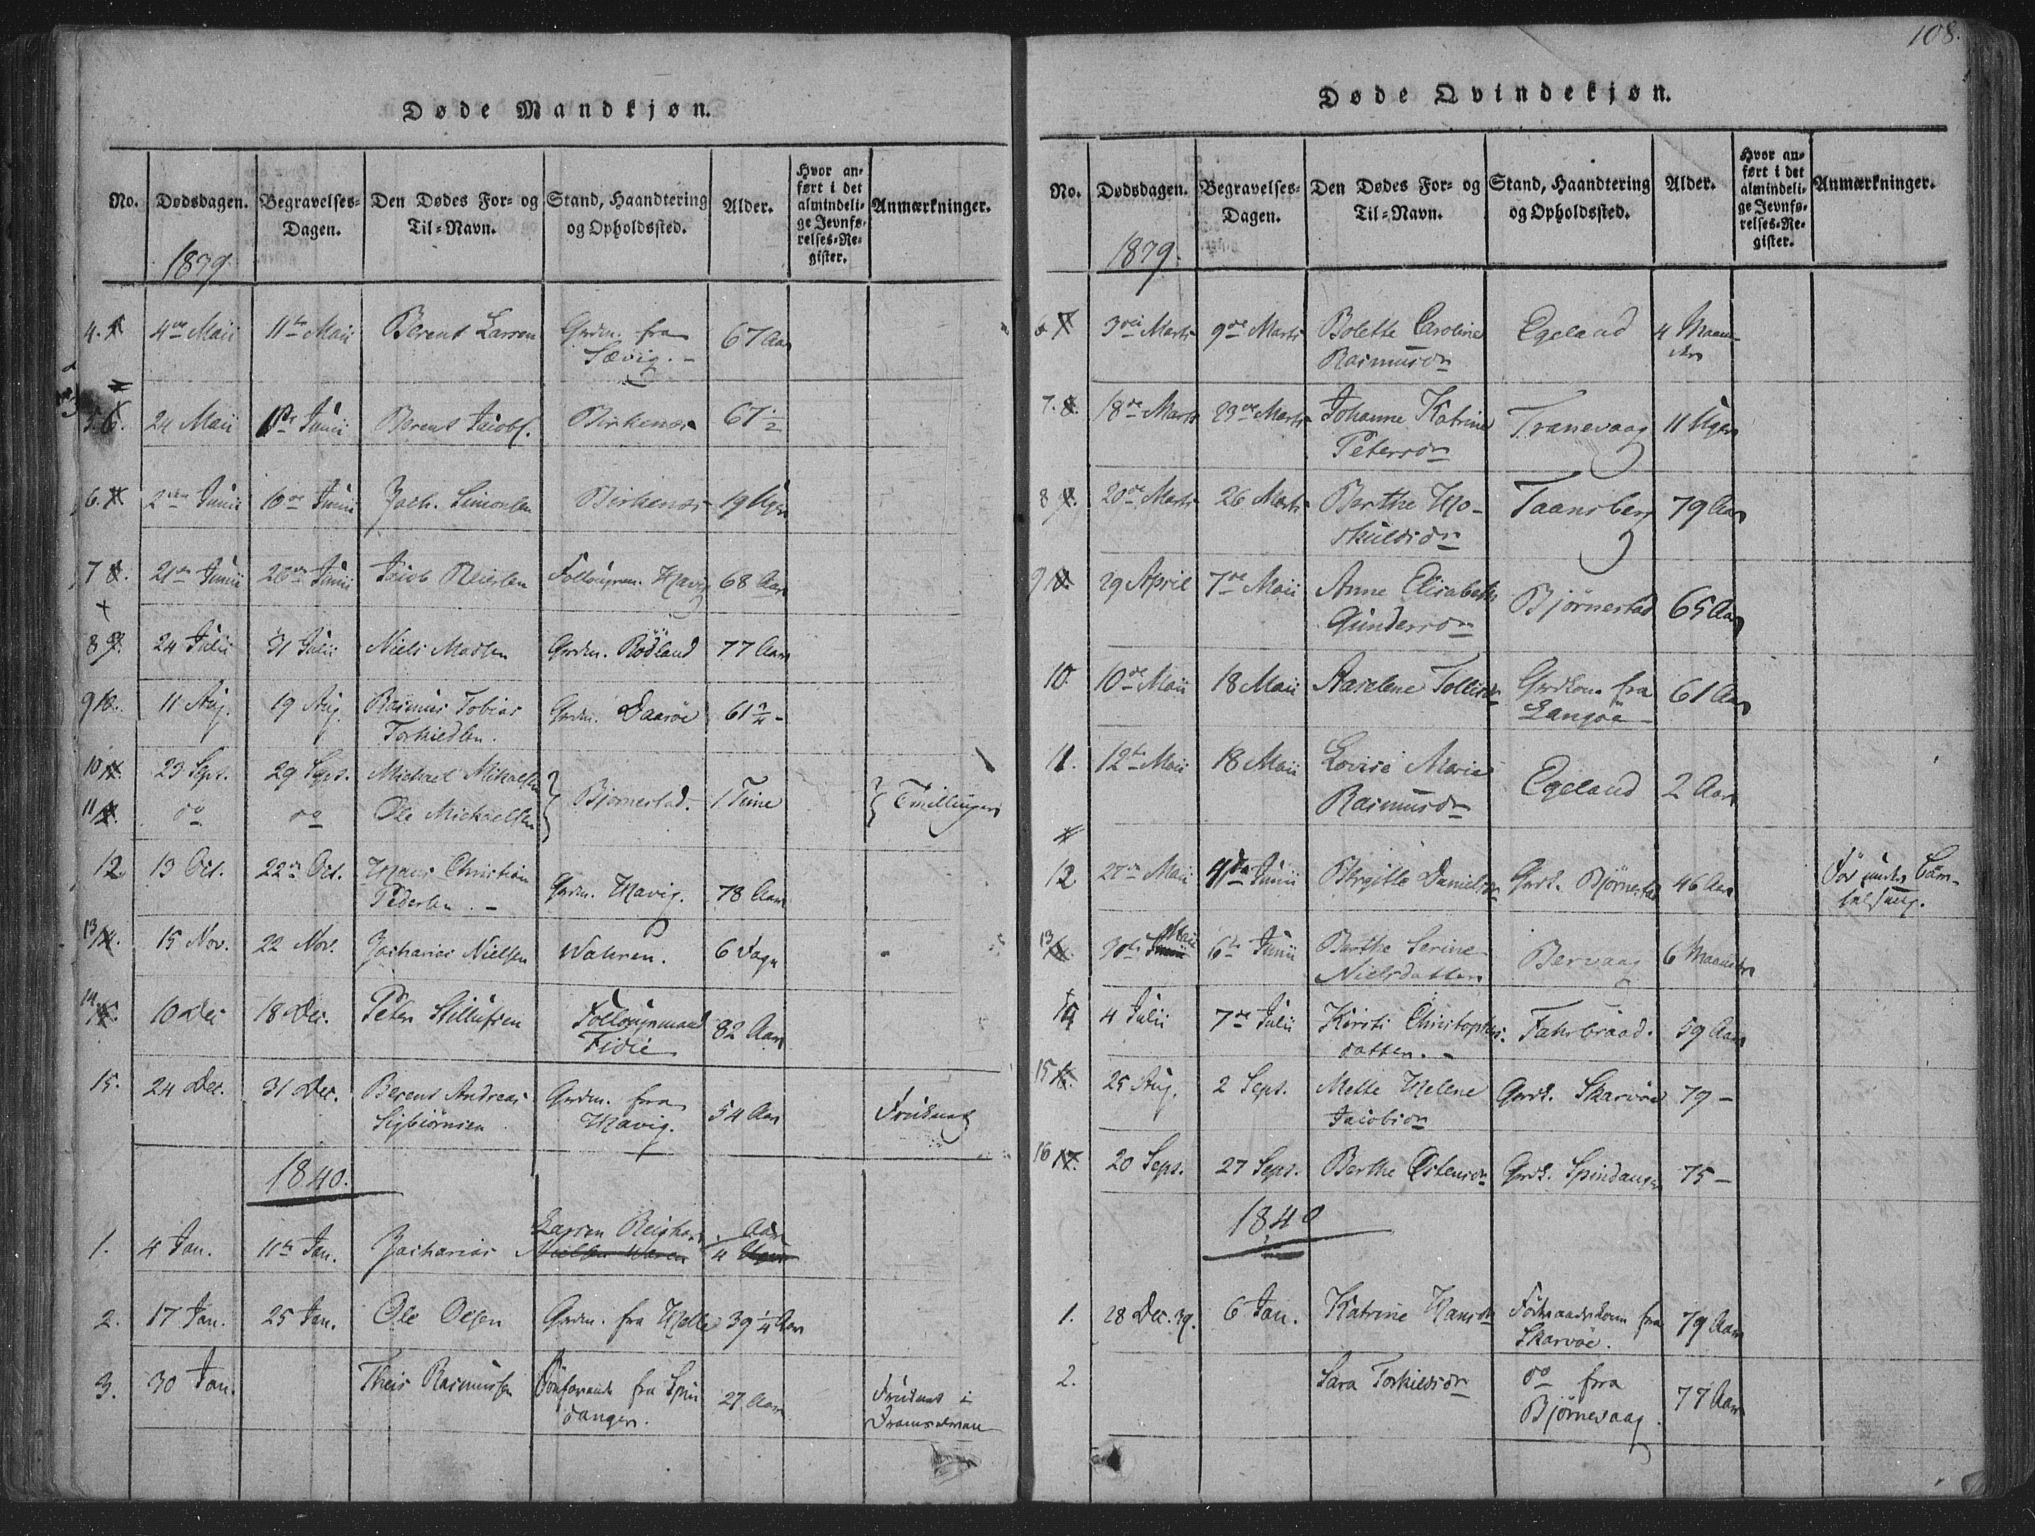 108.
Døde Mandkjøn.
No. Dødsdagen. Begravelses-Dagen. Den Dødes For- og Til-Navn. Stand, Haandtering og Opholdssted. Alder. Hvor anført i det almindelige Jevnførelses-Register. Anmærkninger.
1839.
4. 4de Maii 11te Maii Berent Larsen Grdm. fra Sævig. 67 Aar
5. 24 Maii 1ste Junii Berent Jacobs. Birkenes 67 1/2
6. 2den Junii 10de Junii Zach. Simonsen Birkenes 19 Uger
7 21de Junii 28de Junii Jacob Reiersen Follougsm. Havig 68 Aar
8 24 Julii 31 Julii Niels Madsen Grdm. Rödland 77 Aar
9 11 Aug. 19 Aug. Rasmus Tobias Torkiedsen. Grdm. Daaröe 61 1/4 -
10 23 Sept. 29 Sept. Michael Mikaelsen Bjørnestad. 1 Time Tvillinger
11 do do Ole Michaelsen
12. 13 Oct. 22de Oct. Hans Christian Pedersen. Grdm. Havig. 78 Aar
13 15 Nov. 22 Nov. Zacharias Nielsen Wahren. 6 Dage
14 10 Dec 18 Dec. Peter Stillufsen Follougsmand Fidie 82 Aar
15. 24 Dec. 31 Dec. Berent Andreas Sigbiörnsen Grdm. fra Havig. 54 Aar Druknet
1840.
1. 4 Jan. 11te Jan. Zacharias Larsen Nielsen Waren 4 Aar Uger
2. 17 Jan. 25 Jan. Ole Olsen Grdm. fra Helle 39 1/4 Aar
3. 30 Jan. Theis Rasmussen fra Spindangen. 27 Aar Druknet i
Døde Qvindekjøn.
No. Dødsdagen. Begravelses-Dagen. Den Dødes For- og Til-Navn. Stand, Haandtering og Opholdssted. Alder. Hvor anført i det almindelige Jevnførelses-Register. Anmærkninger.
1839.
6 3die Marts 9de Marts Bolette Caroline Rasmusdr Egeland 4 Maaneder
7. 18de Marts 29de Marts Johanne Katrine Petersdr Tranevaag 11 Uger
8 20de Marts 26 Marts Berthe Hoskuldsdr Taansberg 79 Aar
9 29 April 7de Maii Anne Elisabeth Gundersdr Bjørnestad 65 Aar
10. 10de Maii 18 Maii Aaselene Tollisdr Grdkone fra Langøe 61 Aar
11. 12te Maii 18 Maii Lovise Marie Rasmusdr Egeland 2 Aar
12 27de Maii Junii Birgitte Danielsdr Grdk. Bjørnestad 46 Aar Død under Barselseng.
13 30te Maii Junii 6te Junii Berthe Serine Nielsdatter Bervaag 6 Maaneder
14 4 Julii 7de Julii Kirsti Christophersdatter. Fahrbraad. 59 Aar
15 25 Aug. 2 Sept. Mette Helene Jacobsdr Grdk. Skarvöe 79 -
16 20 Sept. 27 Sept. Berthe Östensdr Grdk. Spindangen 75 -
1840
1. 28 Dec. 39. 6 Jan. Katrine Hansdr Föderaadskone fra Skarvöe. 79 Aar
2. Sara Torkildsdr do fra Bjørnevaag. 77 Aar